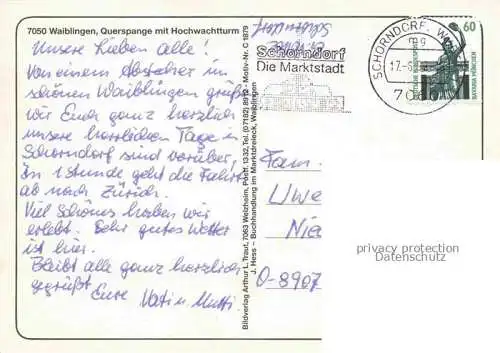 7050 Waiblingen, Querspange mit Hochwachtturm
Unsere Lieben alle!
Von einem Abstecher im
schönen Waiblingen grüßen
wir Euch ganz herzlich
unsere herrlichen Tage in
Schorndorf sind vorüber,
In 1 Stunde geht die Fahrt
ab nach Zürich.
Viel Schönes haben wir
erlebt. Sehr gutes Wetter
ist hier.
Bleibt alle ganz herzlich
gegrüßt Eure Vati u. Mutti
Bildverlag Arthur L. Traut, 7063 Welzheim, Postf. 1332, Tel. (07182) 8913 - Motiv-Nr. C 1979
J. Hess – Buchhandlung im Marktdreieck, Waiblingen
Schorndorf
Die Marktstadt
SCHORNDORF, W
mg
17.-6
70
60
DEUTSCHE BUNDESPOST
BAVARIA MÜNCHEN
Fam.
Uwe
Nie
O-8907
privacy protection
Datenschutz